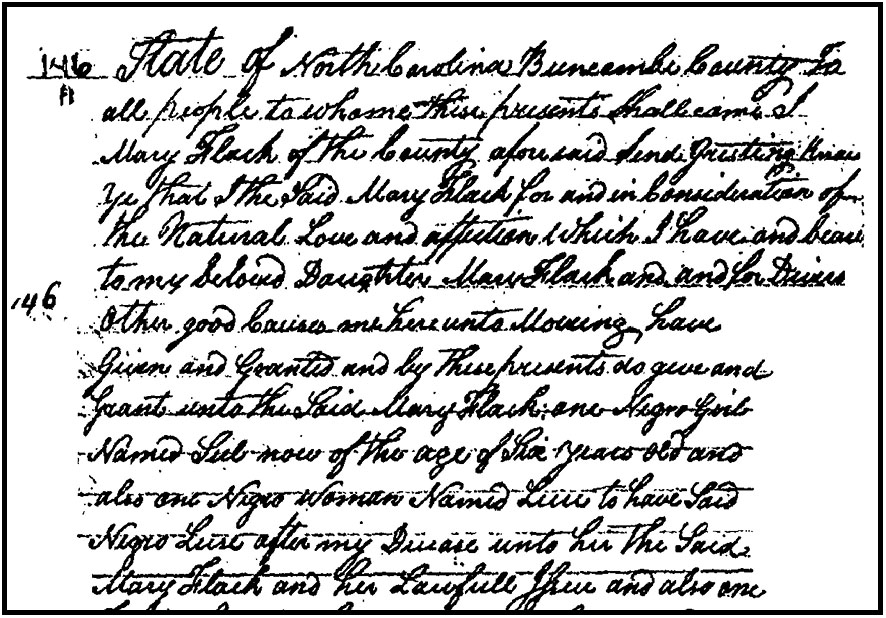 146 State of North Carolina Buncombe County To
all people to whome these presents Shall come I
Mary Flack of the County afore said Send Greeting Know
Ye that I the Said Mary Flack for and in Consideration of
the Natural Love and affection Which I have and bear
to my beloved Daughter Mary Flack and and for Divers
146
Other good Causes me hereunto Moveing have
Given and Granted and by these presents do give and
Grant unto the Said Mary Flack one Negro Girl
Named now of the age of Six years old and
also one Negro Woman Named to have Said
Negro after my Decease unto her the Said
Mary Flack and her Lawfull Ishue and also one